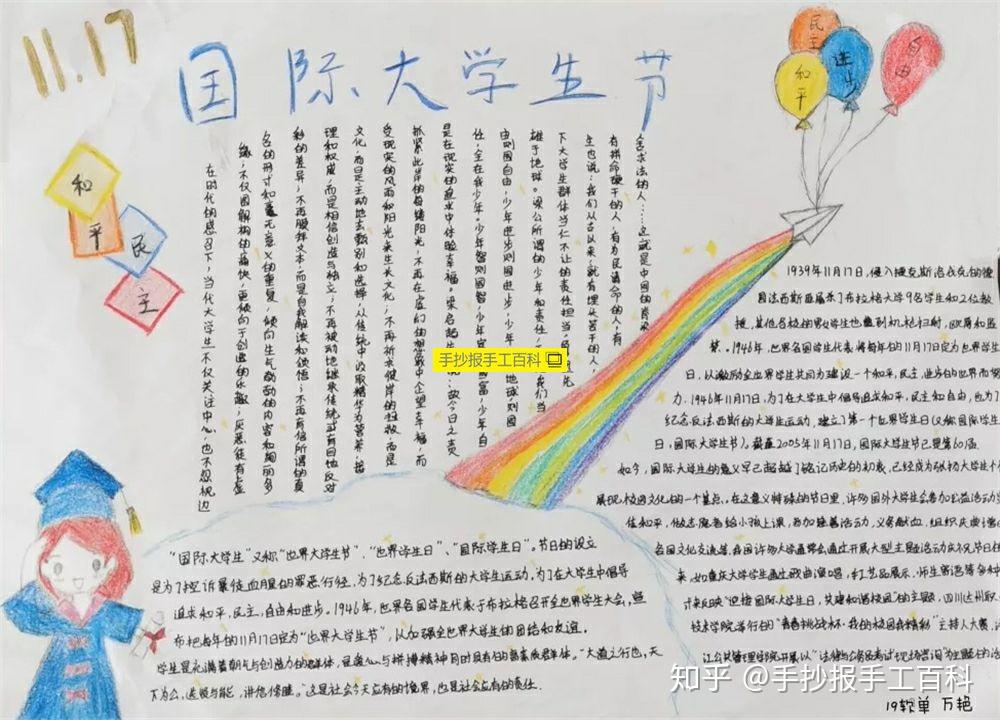 11.17
国际大学生节
民主
进步
和平
自由
和
平
民
主
舍求法的人……这就是中国的脊梁
有拼命硬干的人，有为民请命的人，有
生也说：我们从古以来，就有埋头苦干的人，
下大学生群体当仁不让的责任担当，
雄于地球。梁公所谓的少年和责任，
由则国自由，少年进步则国进步，少年
任，全在我少年。少年智则国智，少年
是在现实的追求中体验幸福。梁启超
抓紧此岸的每缕阳光，不再在虚幻的
受现实的风雨和阳光来生长文化，不再祈求彼岸的拯救，而是
文化，而是主动地去甄别和选择，从传统中吸取精华为营养，
理和权威，而是相信创造与独立；不再被动地继承传统或盲目地反对
彩的差异，不再膜拜文本，而是自我解读和领悟；不再盲信所谓的真
名的形式和毫无意义的重复，倾向生气勃勃的内容和绚丽多
缘；不仅图解构的痛快，更倾向于创造的乐趣；厌恶徒有虚
在时代的感召下，当代大学生不仅关注中心，也不忽视边
手抄报手工百科
1939年11月17日，侵入捷克斯洛伐克的德
国法西斯匪屠杀了布拉格大学9名学生和2位教
授，其他各校的男女学生也遭到机枪扫射，殴辱和监
禁。1946年，世界各国学生代表将每年的11月17日定为世界学生
日，以激励全世界学生共同为建设一个和平，民主，进步的世界而努
力。1946年11月17日，为了在大学生中倡导追求和平，民主和自由，也为了
纪念反法西斯的大学生运动，建立了第一个世界学生日（又称国际学生
日，国际大学生节）。截至2005年11月17日，国际大学生节已是第60届
如今，国际大学生的意义早已超越了铭记历史的初衷，已经成为张扬大学生个
展现校园文化的一个基点，在这意义特殊的节日里，许多国外大学生会参加公益活动
信和平，做志愿者给小孩上课，参加慈善活动，义务献血，组织庆典
各国文化交流等，我国许多大学通常会通过开展大型主题活动庆祝节日
来，如重庆大学学生通过歌曲演唱，手工艺品展示，师生寄语等多种
计来反映“迎接国际大学生日，共建和谐校园”的主题，四川达州职
技术学院举行的“青春挑战杯·我的校园我精彩”主持人大赛，
“国际大学生”又称“世界大学生节”、“世界学生日”、“国际学生日”。节日的设立
是为了控诉暴徒血腥的罪恶行径，为了纪念反法西斯的大学生运动，为了在大学生中倡导
追求和平，民主，自由和进步。1946年，世界各国学生代表于布拉格召开全世界学生大会，宣
布把每年的11月17日定为“世界大学生节”，以加强全世界大学生的团结和友谊。
学生是充满着朝气与创造力的群体，是爱心与拼搏精神同时具有的高素质群体。“大道之行也，天
下为公，选贤与能，讲信修睦。”这是社会今天应有的境界，也是社会应有的责任。
知乎 @手抄报手工百科
19软单 万艳